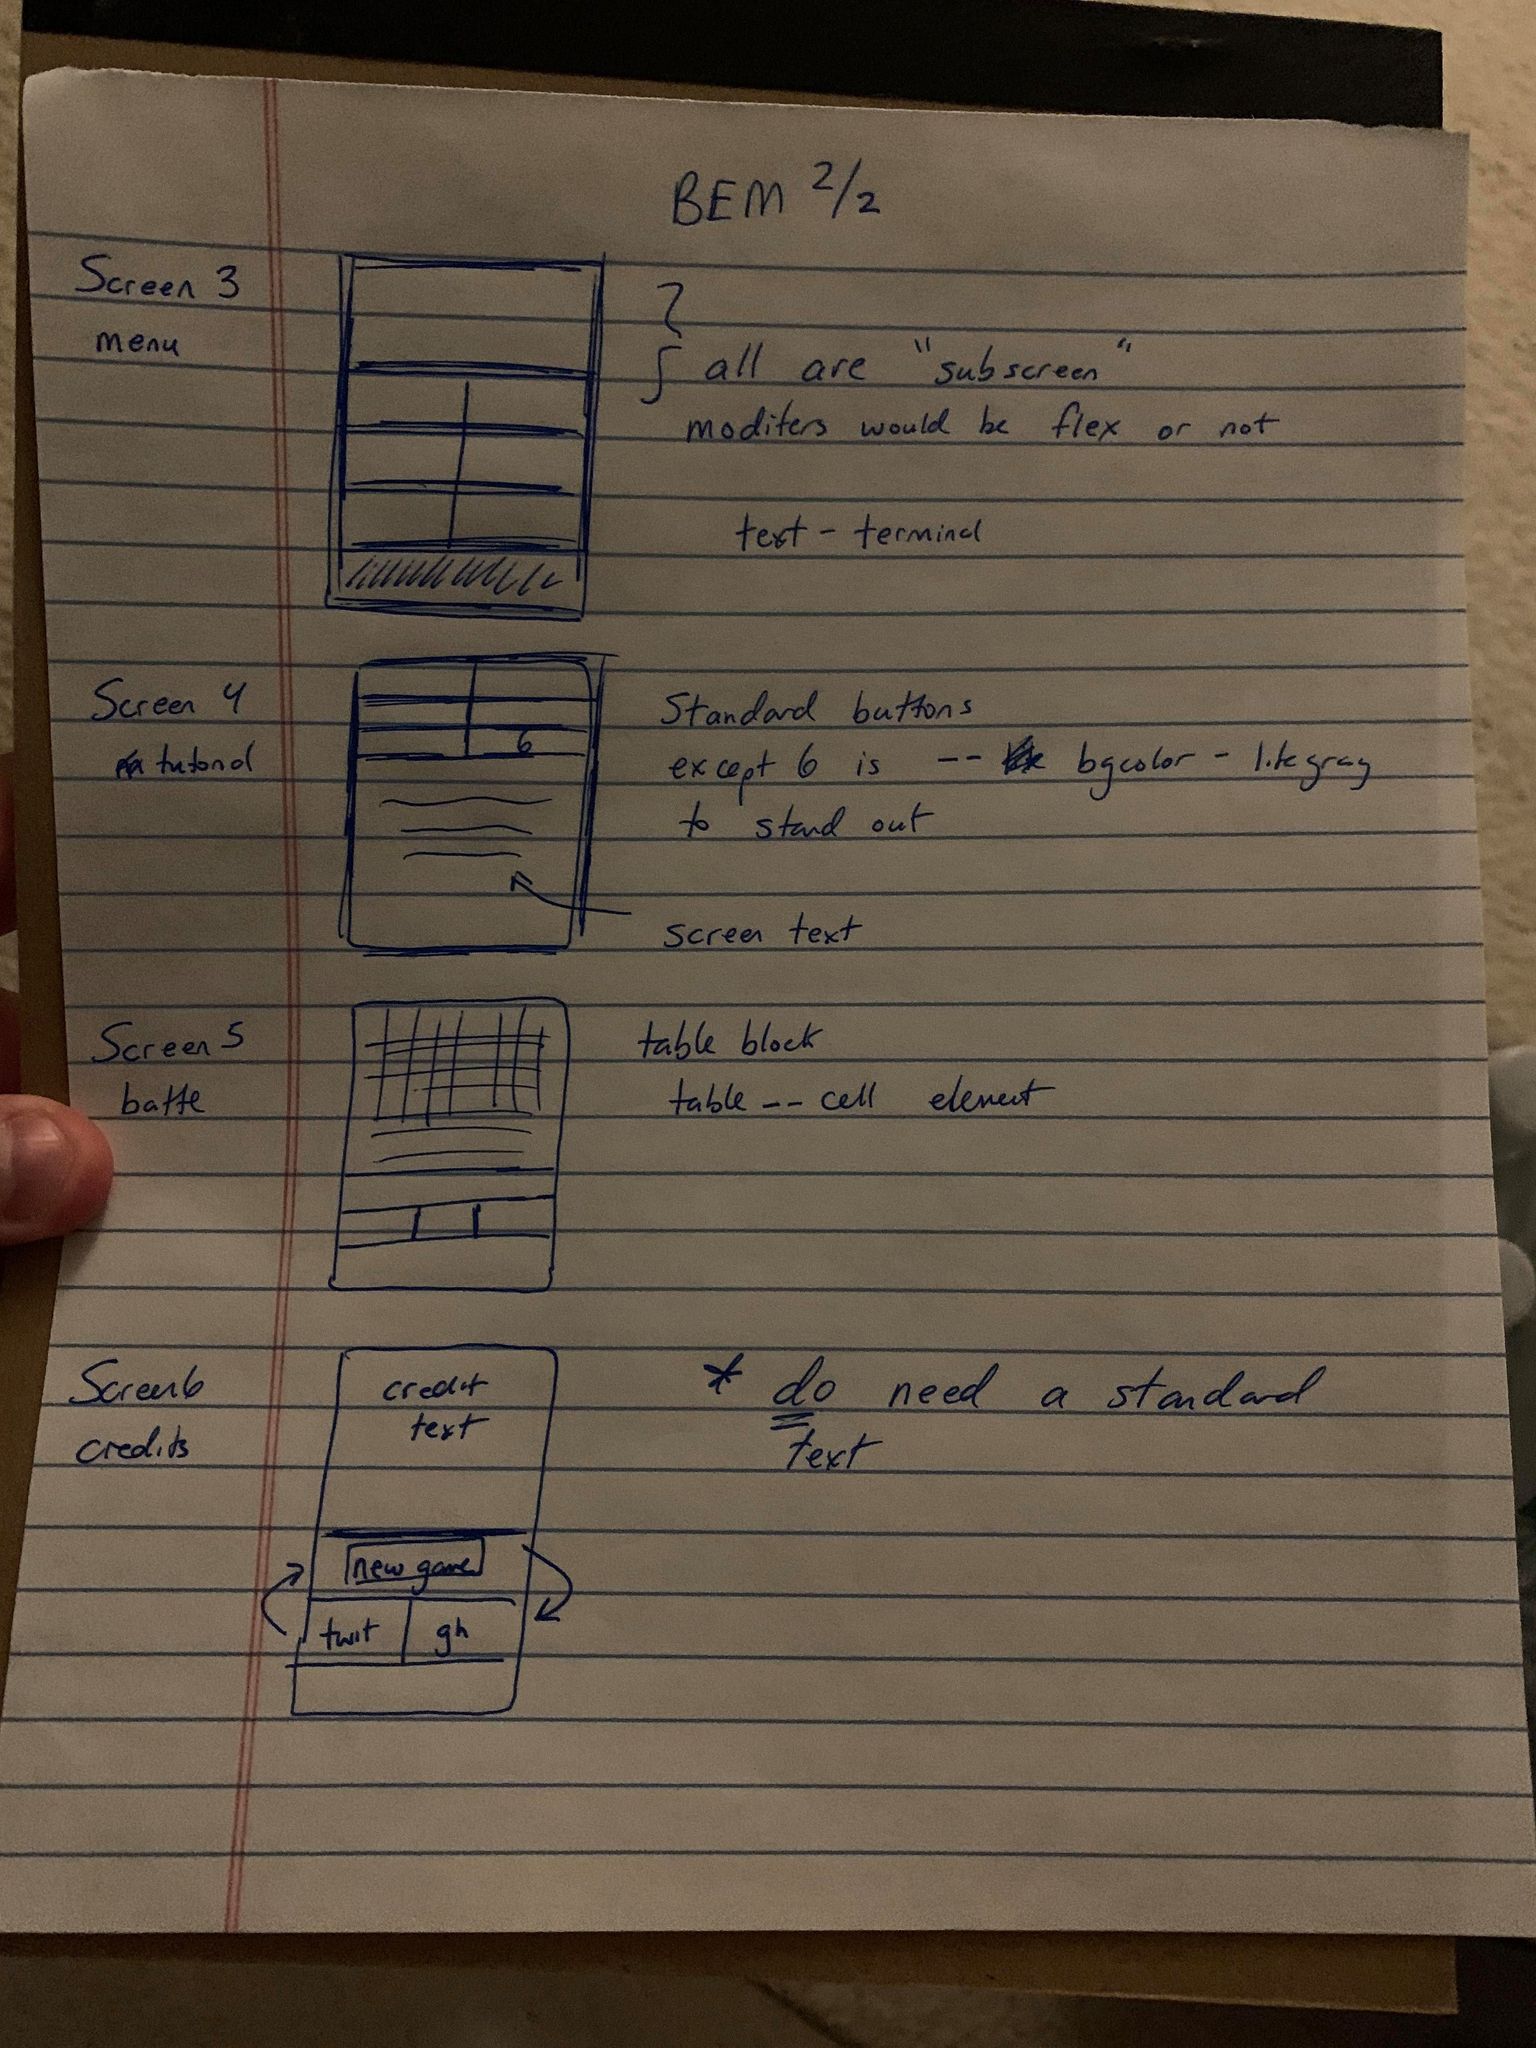 BEM 2/2
Screen 3
menu
all are "subscreen"
modifers would be flex or not
text - terminal
Screen 4
tutorial
6
Standard buttons
except 6 is -- bgcolor - litegray
to stand out
screen text
Screen 5
battle
table block
table -- cell element
Screen 6
credits
credit
text
new game
twit gh
* do need a standard
text